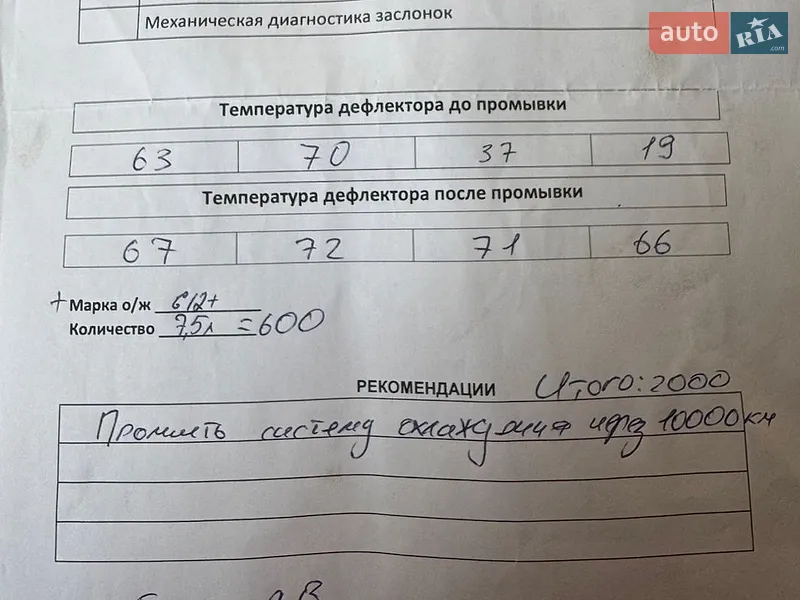 Механическая диагностика заслонок
auto RIA .com
Температура дефлектора до промывки
63 70 37 19
Температура дефлектора после промывки
67 72 71 66
+ Марка о/ж G12+
Количество 7,5л =600
РЕКОМЕНДАЦИИ Итого: 2000
Промыть систему охлаждения через 10000 км